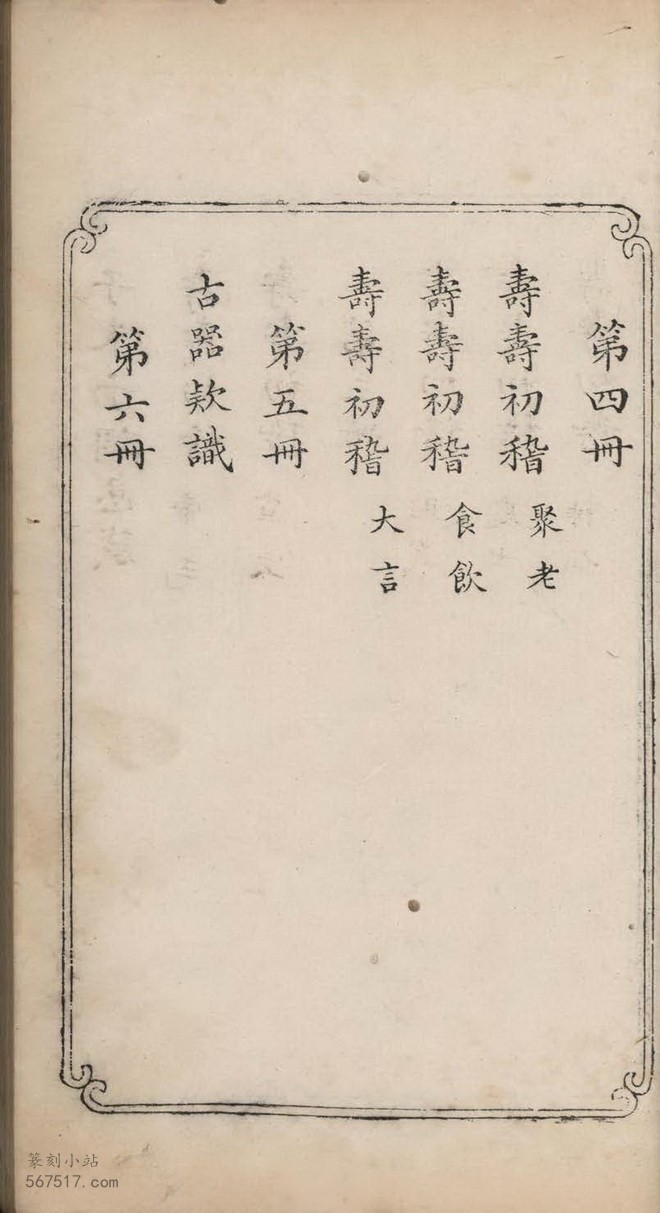 第四冊
壽壽初稽 聚老
壽壽初稽 食飲
壽壽初稽 大言
第五冊
古器欵識
第六冊
篆刻小站
567517.com